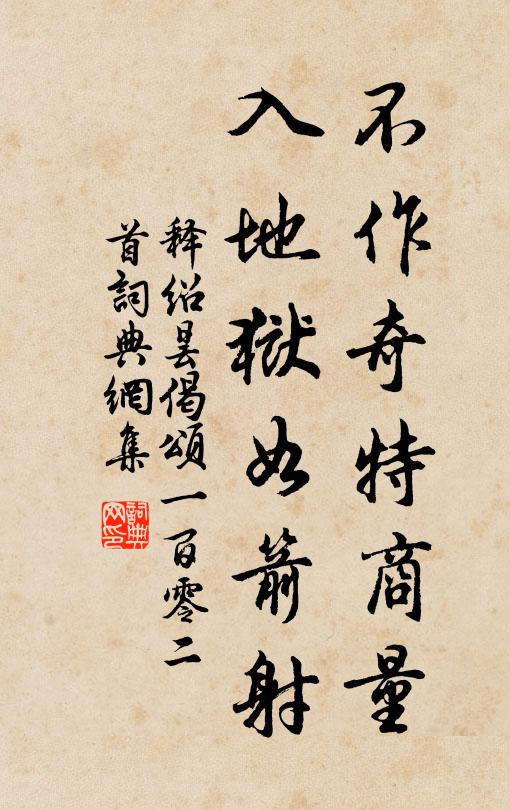 不作奇特商量
入地獄如箭射
释绍昙偈頌一百零二
首詞典網集
詞典网印